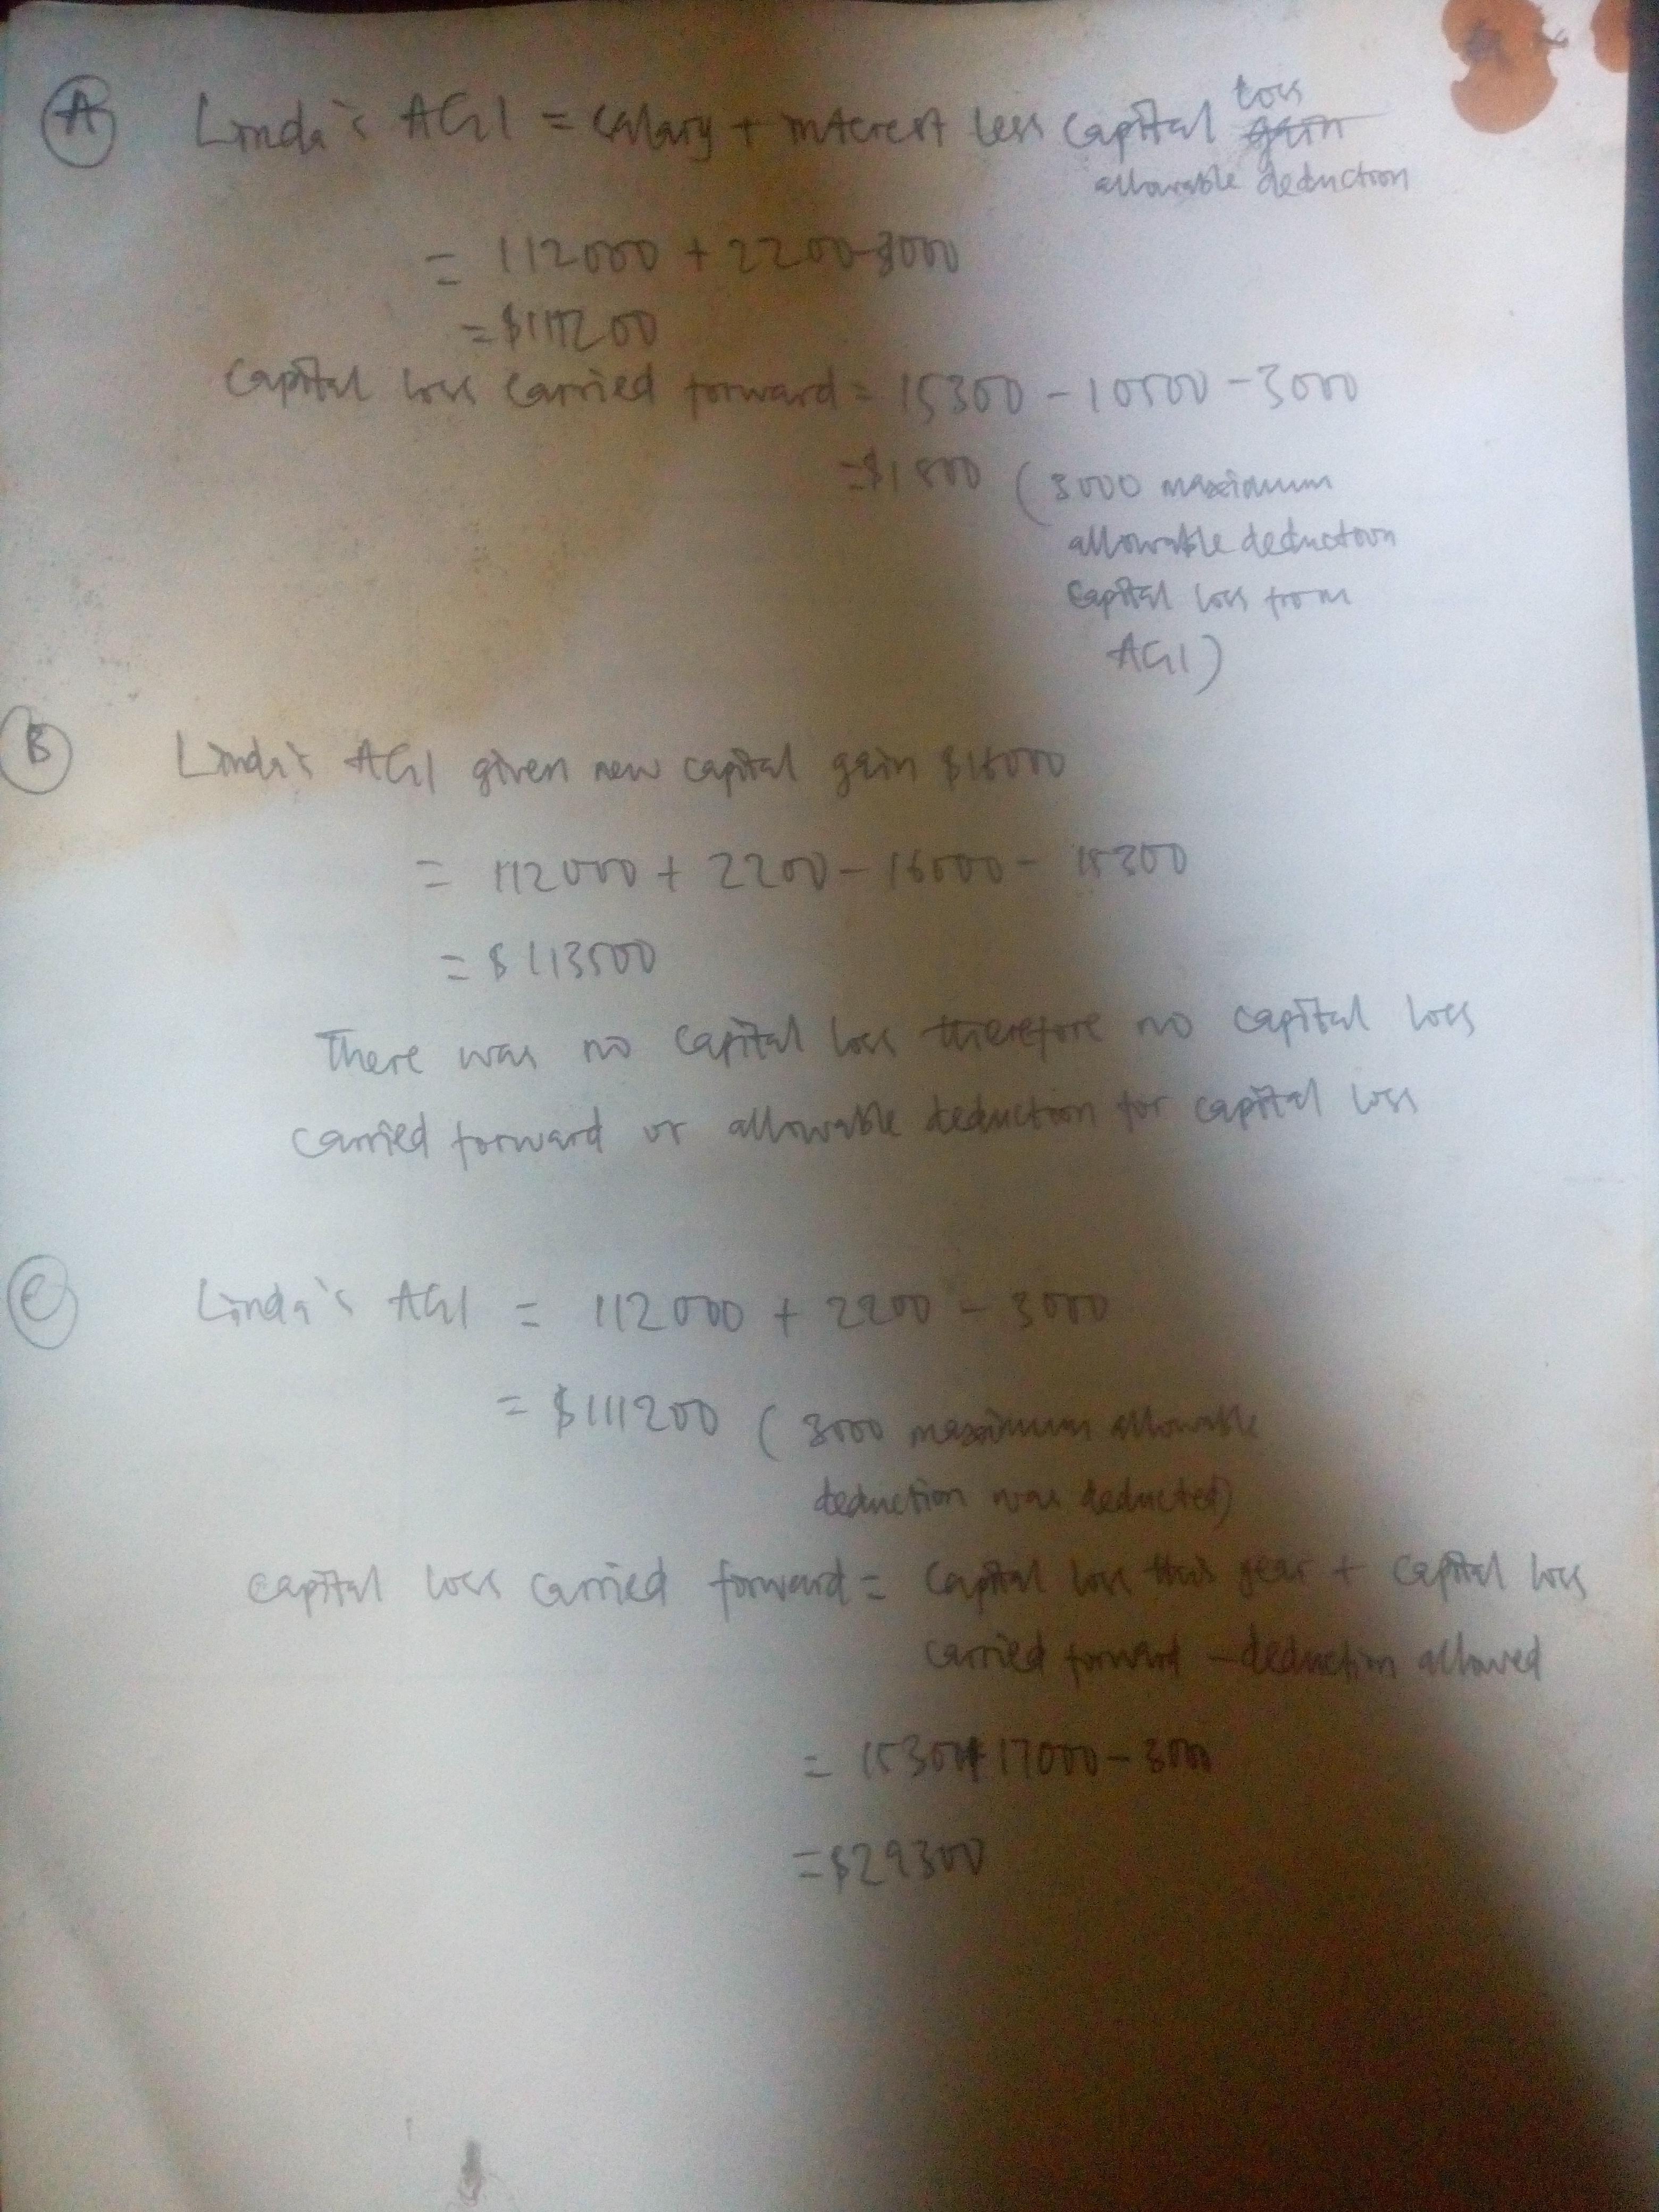 A Linda's AGI = salary + interest less capital loss gain
allowable deduction
= 112000 + 2200-3000
= $111200
Capital loss carried forward = 15300 - 10500 - 3000
= $1800 (3000 maximum
allowable deduction
capital loss from
AGI)
B Linda's AGI given new capital gain $16000
= 112000 + 2200 - 16000 - 15300
= $113500
There was no capital loss therefore no capital loss
carried forward or allowable deduction for capital loss
C Linda's AGI = 112000 + 2200 - 3000
= $111200 (3000 maximum allowable
deduction was deducted)
capital loss carried forward = capital loss this year + capital loss
carried forward - deduction allowed
= 15300+17000-3000
= $29300